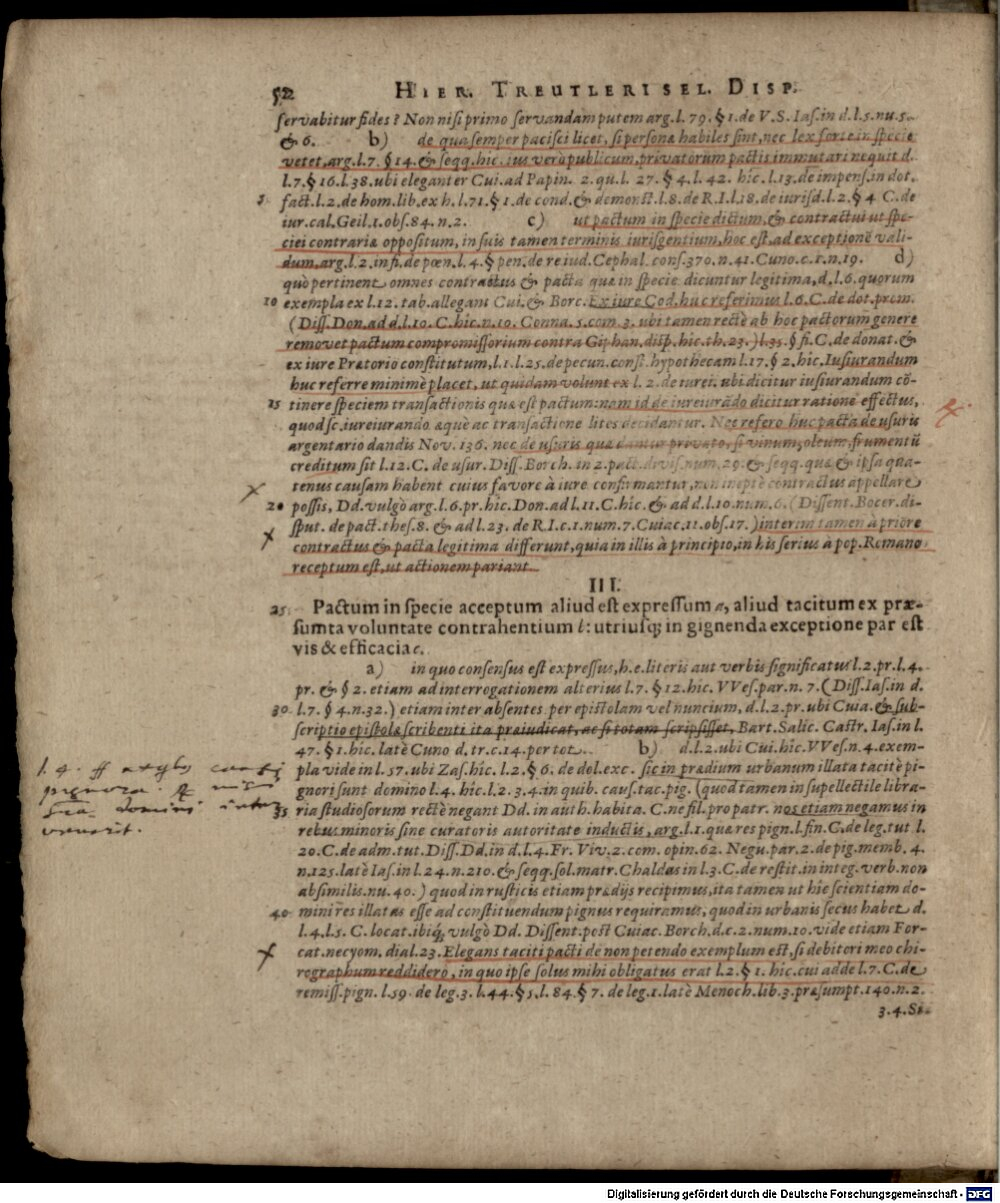 52 HIER. TREUTLERI SEL. DISP.
servabitur fides? Non nisi primo servandam putem arg. l. 79. § 1. de V. S. Ias. in d. l. 5. nu. 5.
& 6. b) de qua semper pacisci licet, si personæ habiles sint, nec lex forte in specie
vetet, arg. l. 7. § 14. & seqq. hic. ius verò publicum, privatorum pactis immutari nequit d.
l. 7. § 16. l. 38. ubi eleganter Cui. ad Papin. 2. qu. l. 27. § 4. l. 42. hîc. l. 13. de impens. in dot.
5 fact. l. 2. de hom. lib. ex h. l. 71. § 1. de cond. & demonst. l. 8. de R. I. l. 18. de iurisd. l. 2. § 4 C. de
iur. cal. Geil. 1. obs. 84. n. 2. c) ut pactum in specie dictum, & contractui ut spe-
ciei contrariæ oppositum, in suis tamen terminis iuris gentium, hoc est, ad exceptionē vali-
dum, arg. l. 2. in fi. de pœn. l. 4. § pen. de re iud. Cephal. cons. 370. n. 41. Cuno. c. 1. n. 19. d)
quò pertinent omnes contractus & pacta quæ in specie dicuntur legitima, d. l. 6. quorum
10 exempla ex l. 12. tab. allegant Cui. & Borc. Ex iure Cod. huc referimus l. 6. C. de dot. prom.
(Diss. Don. ad d. l. 10. C. hic. n. 10. Conna. 5. com. 3. ubi tamen rectè ab hoc pactorum genere
removet pactum compromissorium contra Giphan. disp. hic. th. 23.) l. 35. § fi. C. de donat. &
ex iure Prætorio constitutum, l. 1. l. 25. de pecun. const. hypothecam l. 17. § 2. hic. Iusiurandum
huc referre minimè placet, ut quidam volunt ex l. 2. de iurei. ubi dicitur iusiurandum cō-
15 tinere speciem transactionis quæ est pactum: nam id de iureiurādo dicitur ratione effectus,
quod sc. iureiurando æquè ac transactione lites decidantur. Nec refero huc pacta de usuris
argentario dandis Nov. 136. nec de usuris quæ dantur privato, si vinum, oleum, frumentū
creditum sit l. 12. C. de usur. Diss. Borch. in 2. pact. divis. num. 29. & seqq. quæ & ipsa qua-
tenus causam habent cuius favore à iure confirmantur, non ineptè contractus appellare
20 possis, Dd. vulgò arg. l. 6. pr. hic. Don. ad l. 11. C. hîc. & ad d. l. 10. num. 6. (Dissent. Bocer. di-
sput. de pact. thes. 8. & ad l. 23. de R. I. c. 1. num. 7. Cuiac. 11. obs. 17.) interim tamen à priore
contractus & pacta legitima differunt, quia in illis à principio, in his serius à pop. Romano
receptum est, ut actionem pariant.
III.
25 Pactum in specie acceptum aliud est expressum a, aliud tacitum ex præ-
sumta voluntate contrahentium b: utriusq; in gignenda exceptione par est
vis & efficacia c.
a) in quo consensus est expressus, h. e. literis aut verbis significatus l. 2. pr. l. 4.
pr. & § 2. etiam ad interrogationem alterius l. 7. § 12. hic. VVes. par. n. 7. (Diss. Ias. in d.
30 l. 7. § 4. n. 32.) etiam inter absentes per epistolam vel nuncium, d. l. 2. pr. ubi Cuia. & sub-
scriptio epistolæ scribenti ita præiudicat, ac si totam scripsisset, Bart. Salic. Castr. Ias. in l.
47. § 1. hic. latè Cuno d. tr. c. 14. per tot. b) d. l. 2. ubi Cui. hîc. VVes. n. 4. exem-
pla vide in l. 57. ubi Zas. hîc. l. 2. § 6. de dol. exc. sic in prædium urbanum illata tacitè pi-
gnori sunt domino l. 4. hic. l. 2. 3. 4. in quib. caus. tac. pig. (quod tamen in supellectile libra-
35 ria studiosorum rectè negant Dd. in auth. habita. C. ne fil. pro patr. nos etiam negamus in
rebus minoris sine curatoris autoritate inductis, arg. l. 1. quæ res pign. l. fin. C. de leg. tut l.
20. C. de adm. tut. Diss. Dd. in d. l. 4. Fr. Viv. 2. com. opin. 62. Negu. par. 2. de pig. memb. 4.
n. 125. latè Ias. in l. 24. n. 210. & seqq. sol. matr. Chaldas in l. 3. C. de restit. in integ. verb. non
absimilis. nu. 40.) quod in rusticis etiam prædijs recipimus, ita tamen ut hîc scientiam do-
40 mini res illatas esse ad constituendum pignus requiramus, quod in urbanis secus habet d.
l. 4. l. 5. C. locat. ibiq́; vulgò Dd. Dissent. post Cuiac. Borch. d. c. 2. num. 10. vide etiam For-
cat. necyom. dial. 23. Elegans taciti pacti de non petendo exemplum est, si debitori meo chi-
rographum reddidero, in quo ipse solus mihi obligatus erat l. 2. § 1. hic. cui adde l. 7. C. de
remiss. pign. l. 59. de leg. 3. l. 44. § 5. l. 84. § 7. de leg. 1. latè Menoch. lib. 3. præsumpt. 140. n. 2.
3. 4. Si-
l. 4. ff
pignora.
domini
Digitalisierung gefördert durch die Deutsche Forschungsgemeinschaft - DFG